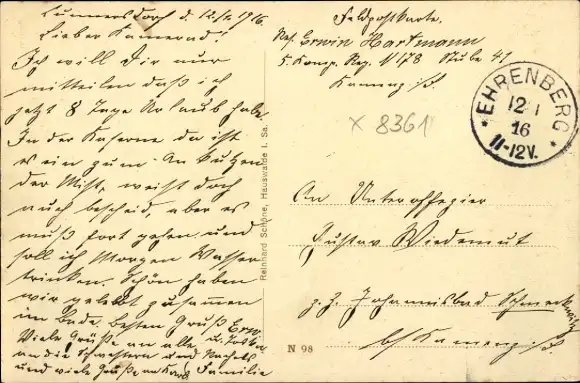 Cunnersdorf d. 12/1. 1916.
Lieber Kamerad!
Ich will Dir nur
mitteilen daß ich
jetzt 8 Tage Urlaub habe
In der Kaserne da ist
es ein zum
der Mist, weißt doch
auch bescheid, aber es
muß fort gehen, und
soll ich Morgen Wasser
trinken. Schön haben
wir gelebt zusammen
im Bade. besten Gruß Erwin
Viele Grüße an alle
an die Schwestern und
und viele Grüße an Familie
Reinhard Schöne, Hauswalde i. Sa.
Feldpostkarte.
Res. Erwin Hartmann
5. Komp. Reg. 178 Stube 41
Kamenz i/S.
x 8361
* EHRENBERG *
12 1
16
11-12V.
An Unteroffizier
Gustav Wiedemut
z. Z. Johannisbad Schmeckwitz
b/ Kamenz i/S.
N 98